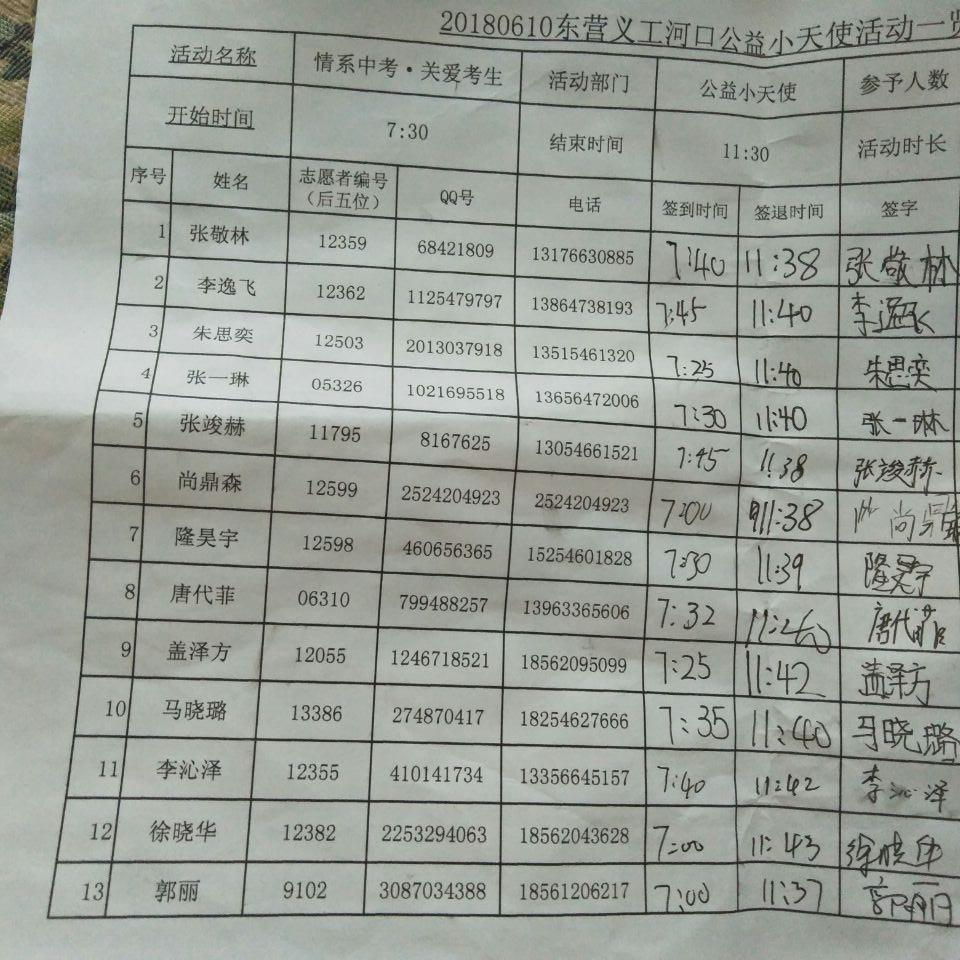 20180610东营义工河口公益小天使活动一览
活动名称 情系中考·关爱考生 活动部门 公益小天使 参予人数
开始时间 7:30 结束时间 11:30 活动时长
序号 姓名 志愿者编号（后五位） QQ号 电话 签到时间 签退时间 签字
1 张敬林 12359 68421809 13176630885 7:40 11:38 张敬林
2 李逸飞 12362 1125479797 13864738193 7:45 11:40 李逸飞
3 朱思奕 12503 2013037918 13515461320 7:25 11:40 朱思奕
4 张一琳 05326 1021695518 13656472006 7:30 11:40 张一琳
5 张竣赫 11795 8167625 13054661521 7:45 11:38 张竣赫
6 尚鼎森 12599 2524204923 2524204923 7:00 11:38 尚鼎森
7 隆昊宇 12598 460656365 15254601828 7:30 11:39 隆昊宇
8 唐代菲 06310 799488257 13963365606 7:32 唐代菲
9 盖泽方 12055 1246718521 18562095099 7:25 11:42 盖泽方
10 马晓璐 13386 274870417 18254627666 7:35 11:40 马晓璐
11 李沁泽 12355 410141734 13356645157 7:40 11:42 李沁泽
12 徐晓华 12382 2253294063 18562043628 7:00 11:43 徐晓华
13 郭丽 9102 3087034388 18561206217 7:00 11:37 郭丽